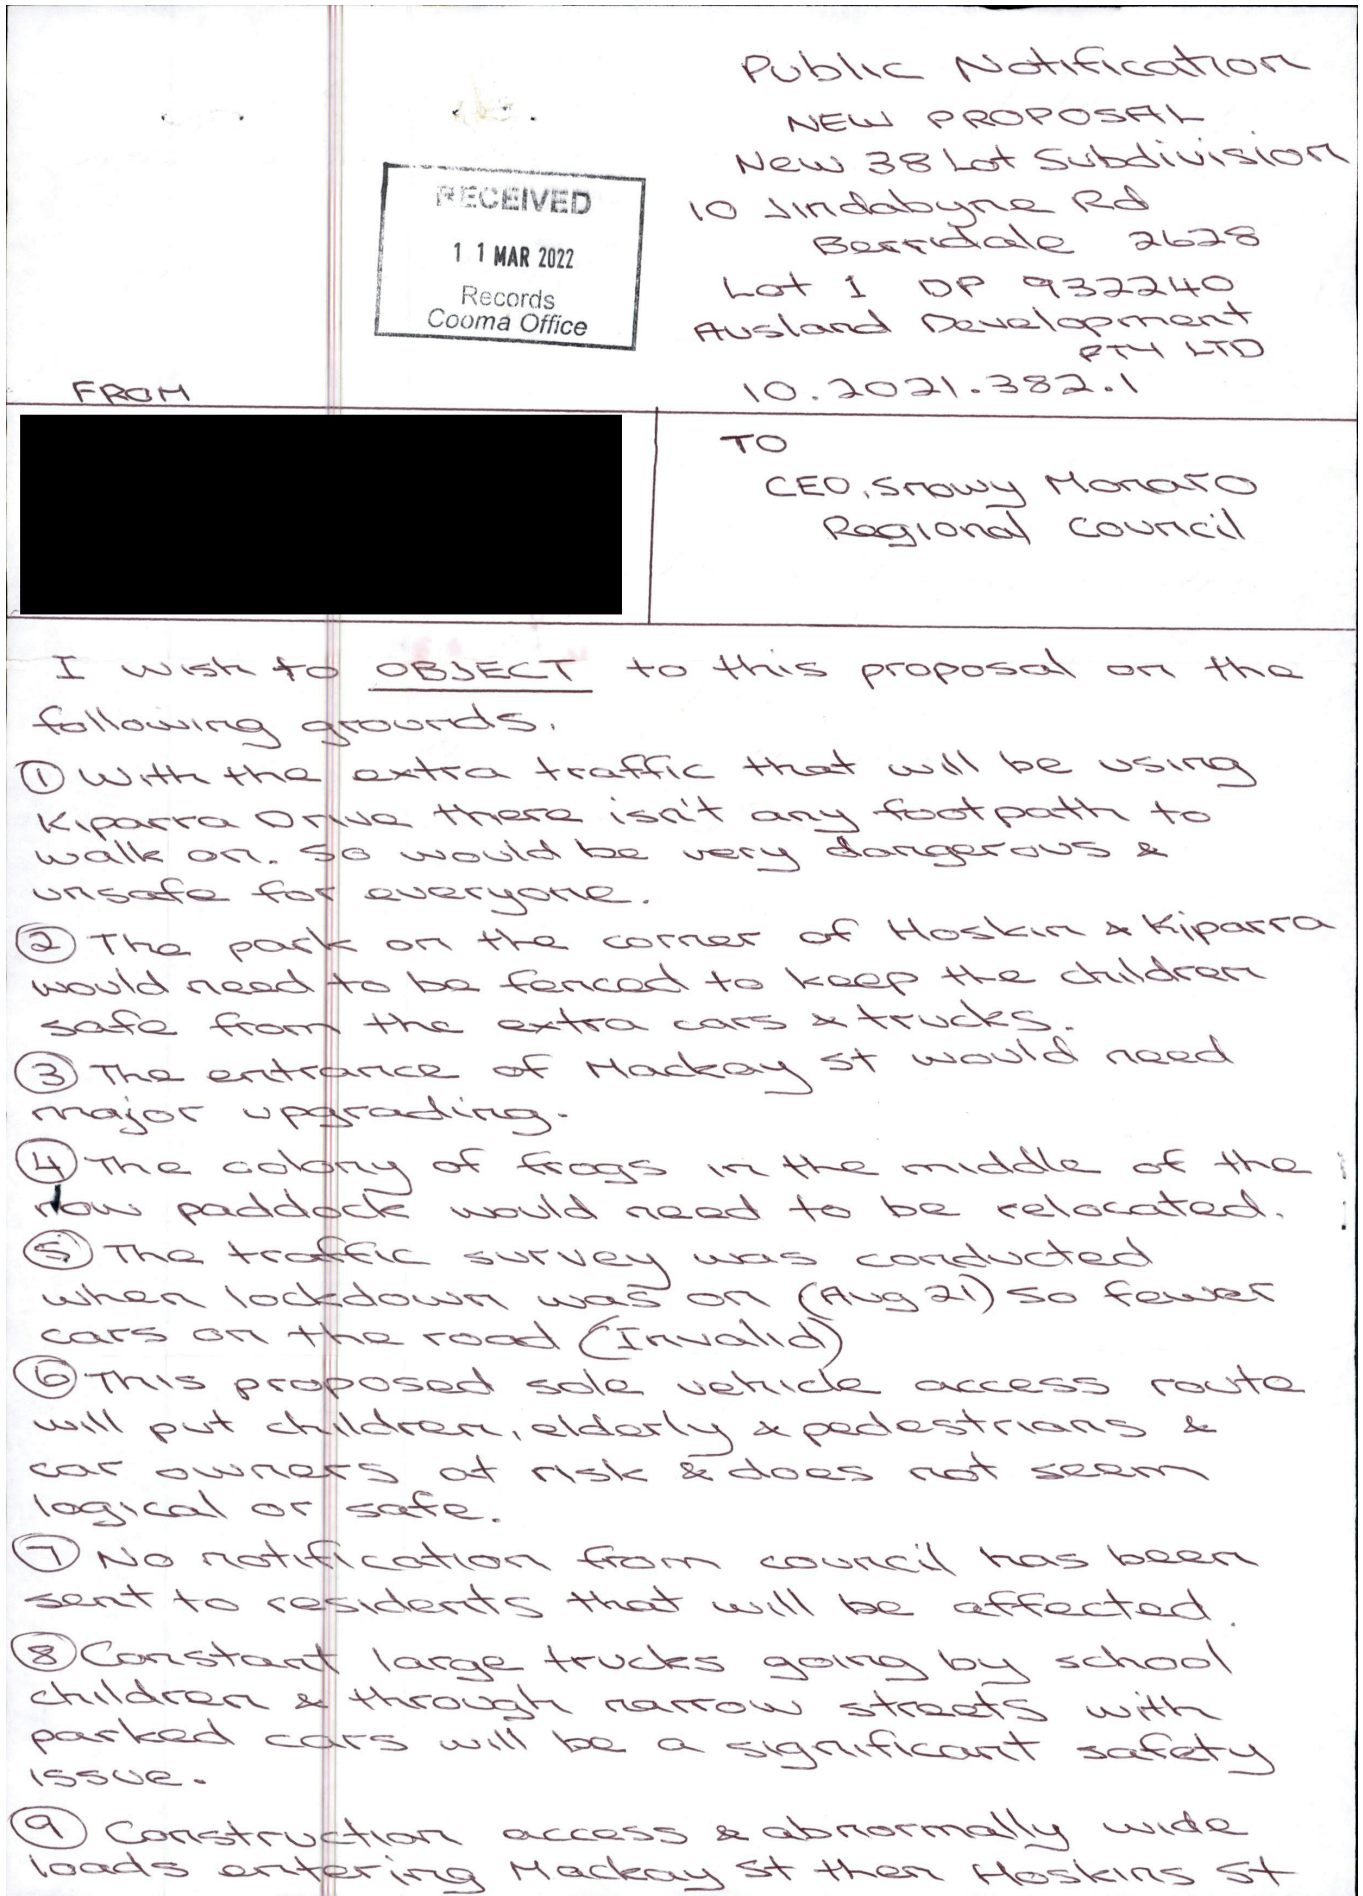 Public Notification
NEW PROPOSAL
New 38 Lot Subdivision
10 Jindabyne Rd
Berridale 2628
Lot 1 DP 932240
Ausland Development
PTY LTD
10.2021.382.1
RECEIVED
11 MAR 2022
Records
Cooma Office
FROM
TO
CEO, Snowy Monaro
Regional Council
I wish to OBJECT to this proposal on the
following grounds.
① With the extra traffic that will be using
Kiparra Drive there isn't any footpath to
walk on. So would be very dangerous &
unsafe for everyone.
② The park on the corner of Hoskin & Kiparra
would need to be fenced to keep the children
safe from the extra cars & trucks.
③ The entrance of Mackay St would need
major upgrading.
④ The colony of frogs in the middle of the
now paddock would need to be relocated.
⑤ The traffic survey was conducted
when lockdown was on (Aug 21) so fewer
cars on the road (Invalid)
⑥ This proposed sole vehicle access route
will put children, elderly & pedestrians &
car owners at risk & does not seem
logical or safe.
⑦ No notification from council has been
sent to residents that will be affected.
⑧ Constant large trucks going by school
children & through narrow streets with
parked cars will be a significant safety
issue.
⑨ Construction access & abnormally wide
loads entering Mackay St then Hoskins St